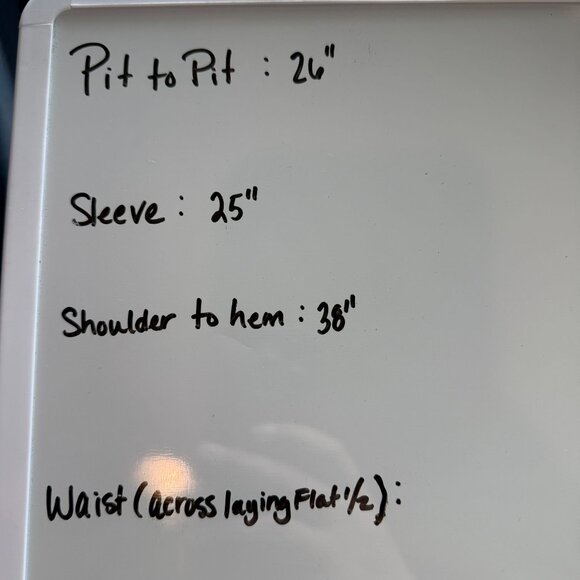 Pit to Pit : 26"
Sleeve : 25"
Shoulder to hem : 38"
Waist (across laying Flat 1/2) :